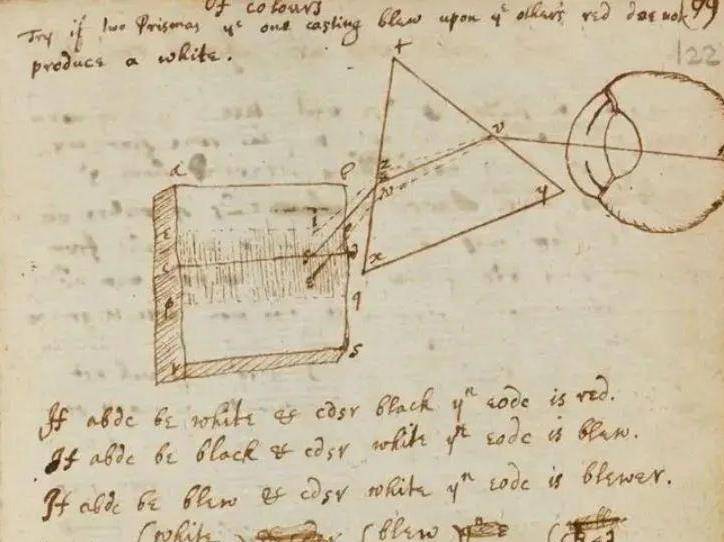 Of colours
99
Try if two Prismas yᵉ one casting blew upon yᵉ other's red doe not
produce a white.
122
t
v
z
w
y
x
a
r
s
q
If abdc be white & cdsr black yⁿ eodc is red.
If abdc be black & cdsr white yⁿ eodc is blew.
If abdc be blew & cdsr white yⁿ eodc is blewer.
(white (blew (Red